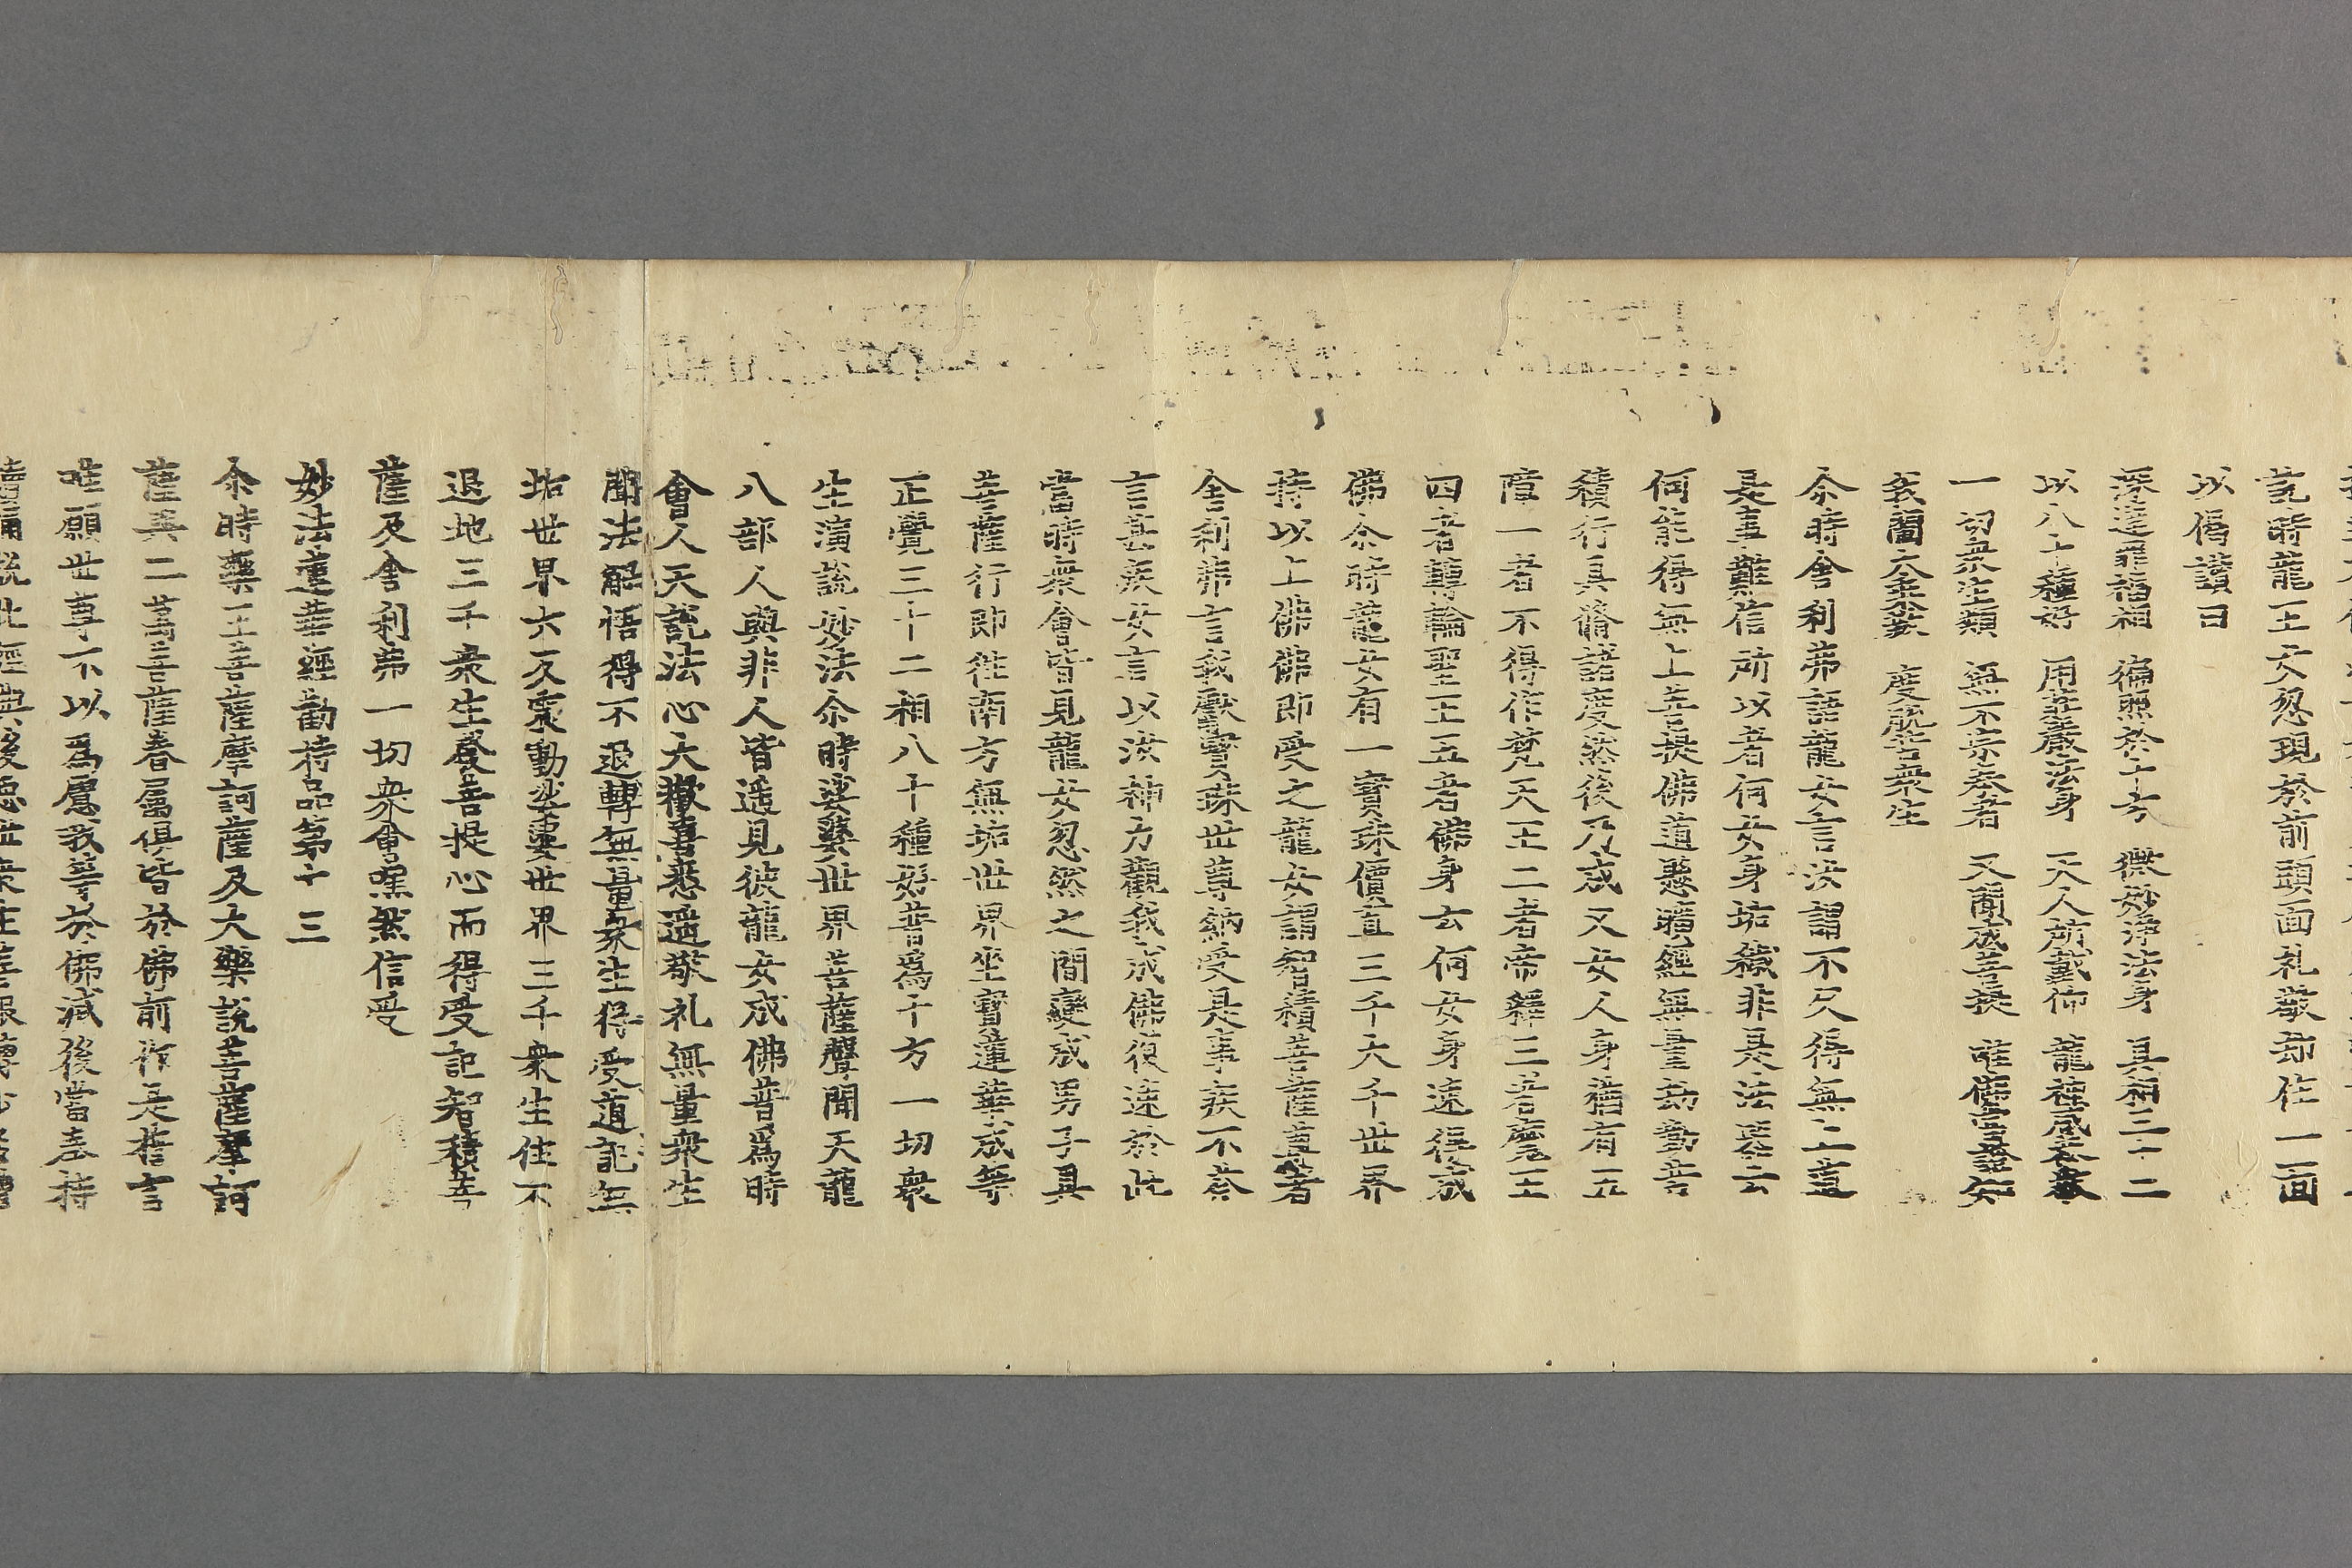 說時龍王女忽現於前頭面礼敬却住一面
以偈讚曰
深達罪福相 徧照於十方 微妙淨法身 具相三十二
以八十種好 用莊嚴法身 天人所戴仰 龍神咸恭敬
一切衆生類 無不宗奉者 又聞成菩提 唯佛當證知
我闡大乘教 度脫苦衆生
尒時舍利弗語龍女言汝謂不久得無上道
是事難信所以者何女身垢穢非是法器云
何能得無上菩提佛道懸曠經無量劫勤苦
積行具脩諸度然後乃成又女人身猶有五
障一者不得作梵天王二者帝釋三者魔王
四者轉輪聖王五者佛身云何女身速得成
佛尒時龍女有一寶珠價直三千大千世界
持以上佛佛即受之龍女謂智積菩薩尊者
舍利弗言我獻寶珠世尊納受是事疾不荅
言甚疾女言以汝神力觀我成佛復速於此
當時衆會皆見龍女忽然之間變成男子具
菩薩行即往南方無垢世界坐寶蓮華成等
正覺三十二相八十種好普爲十方一切衆
生演說妙法尒時娑婆世界菩薩聲聞天龍
八部人與非人皆遥見彼龍女成佛普爲時
會人天說法心大歡喜悉遥敬礼無量衆生
聞法解悟得不退轉無量衆生得受道記無
垢世界六反震動娑婆世界三千衆生住不
退地三千衆生發菩提心而得受記智積菩
薩及舍利弗一切衆會嘿然信受
妙法蓮華經勸持品第十三
尒時藥王菩薩摩訶薩及大樂說菩薩摩訶
薩與二萬菩薩眷屬俱皆於佛前作是誓言
唯願世尊不以爲慮我等於佛滅後當奉持
讀誦說此經典後惡世衆生善根轉少